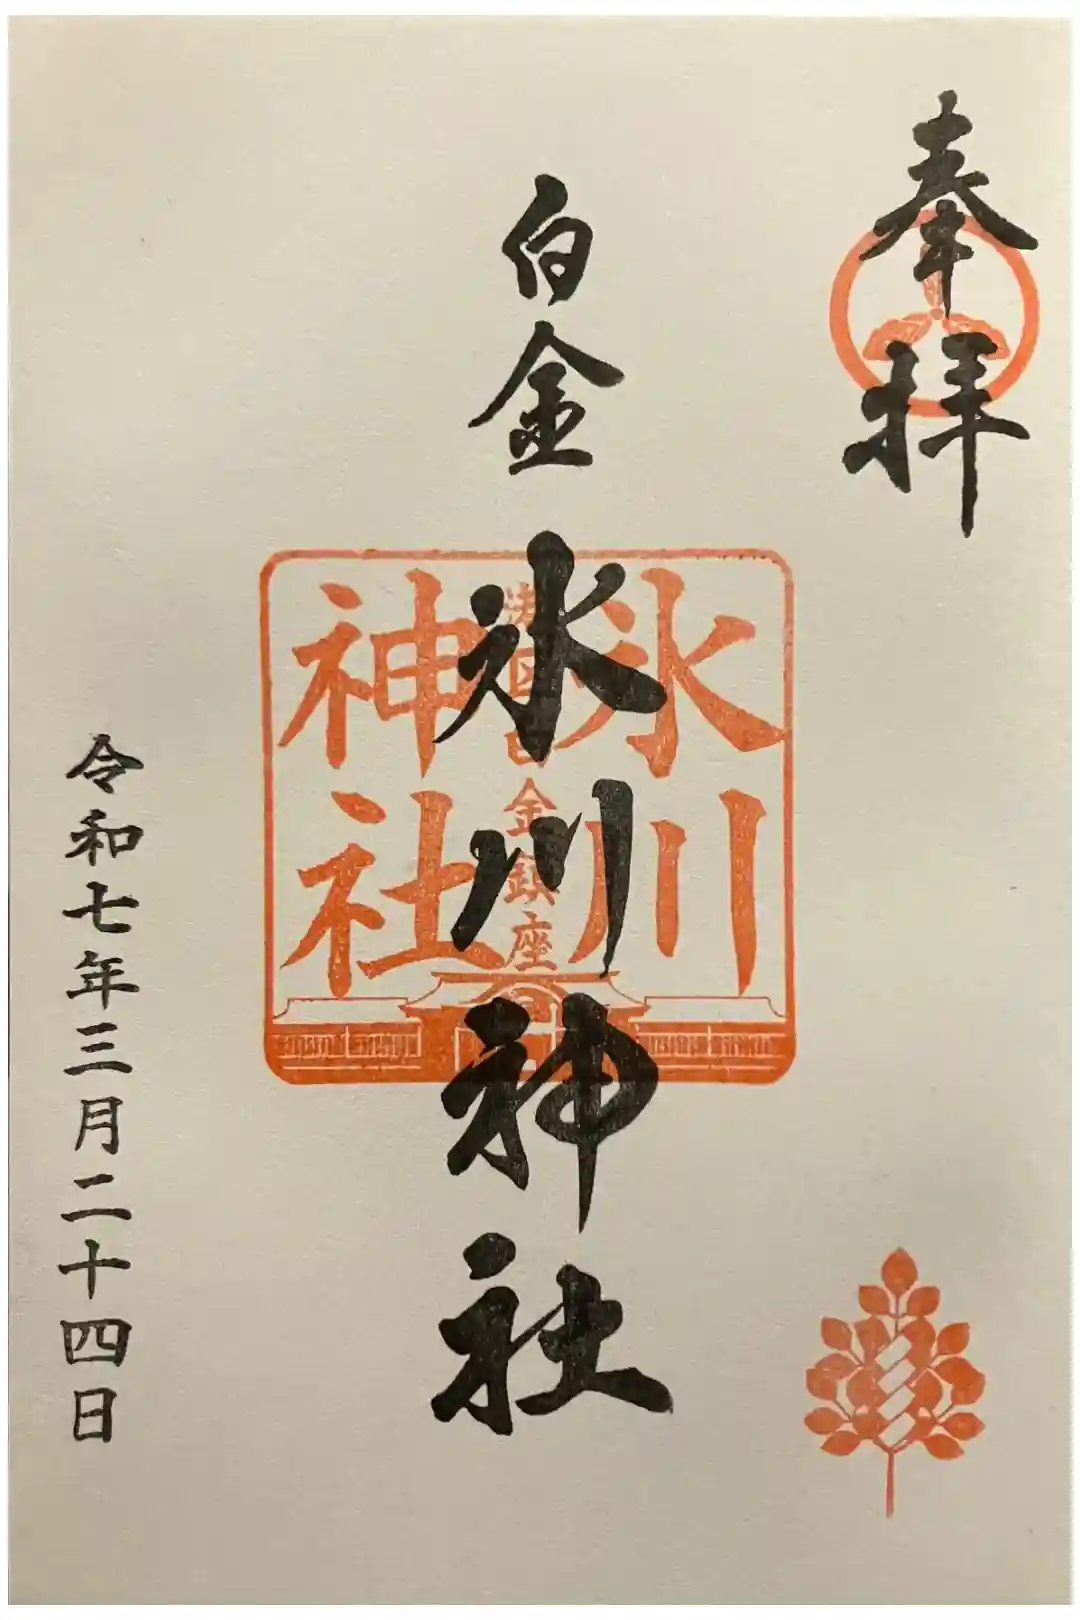 奉拝
白金 氷川神社
氷川
港区白金鎮座
神社
令和七年三月二十四日